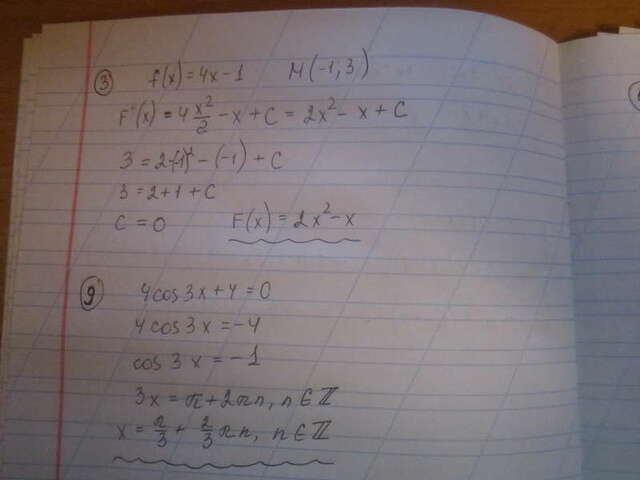 ③ f(x) = 4x - 1 M(-1; 3)
F(x) = 4 x²/2 - x + C = 2x² - x + C
3 = 2(-1)² - (-1) + C
3 = 2 + 1 + C
C = 0 F(x) = 2x² - x
⑨ 4cos3x + 4 = 0
4cos3x = -4
cos3x = -1
3x = π + 2πn, n ∈ ℤ
x = π/3 + 2/3 πn, n ∈ ℤ